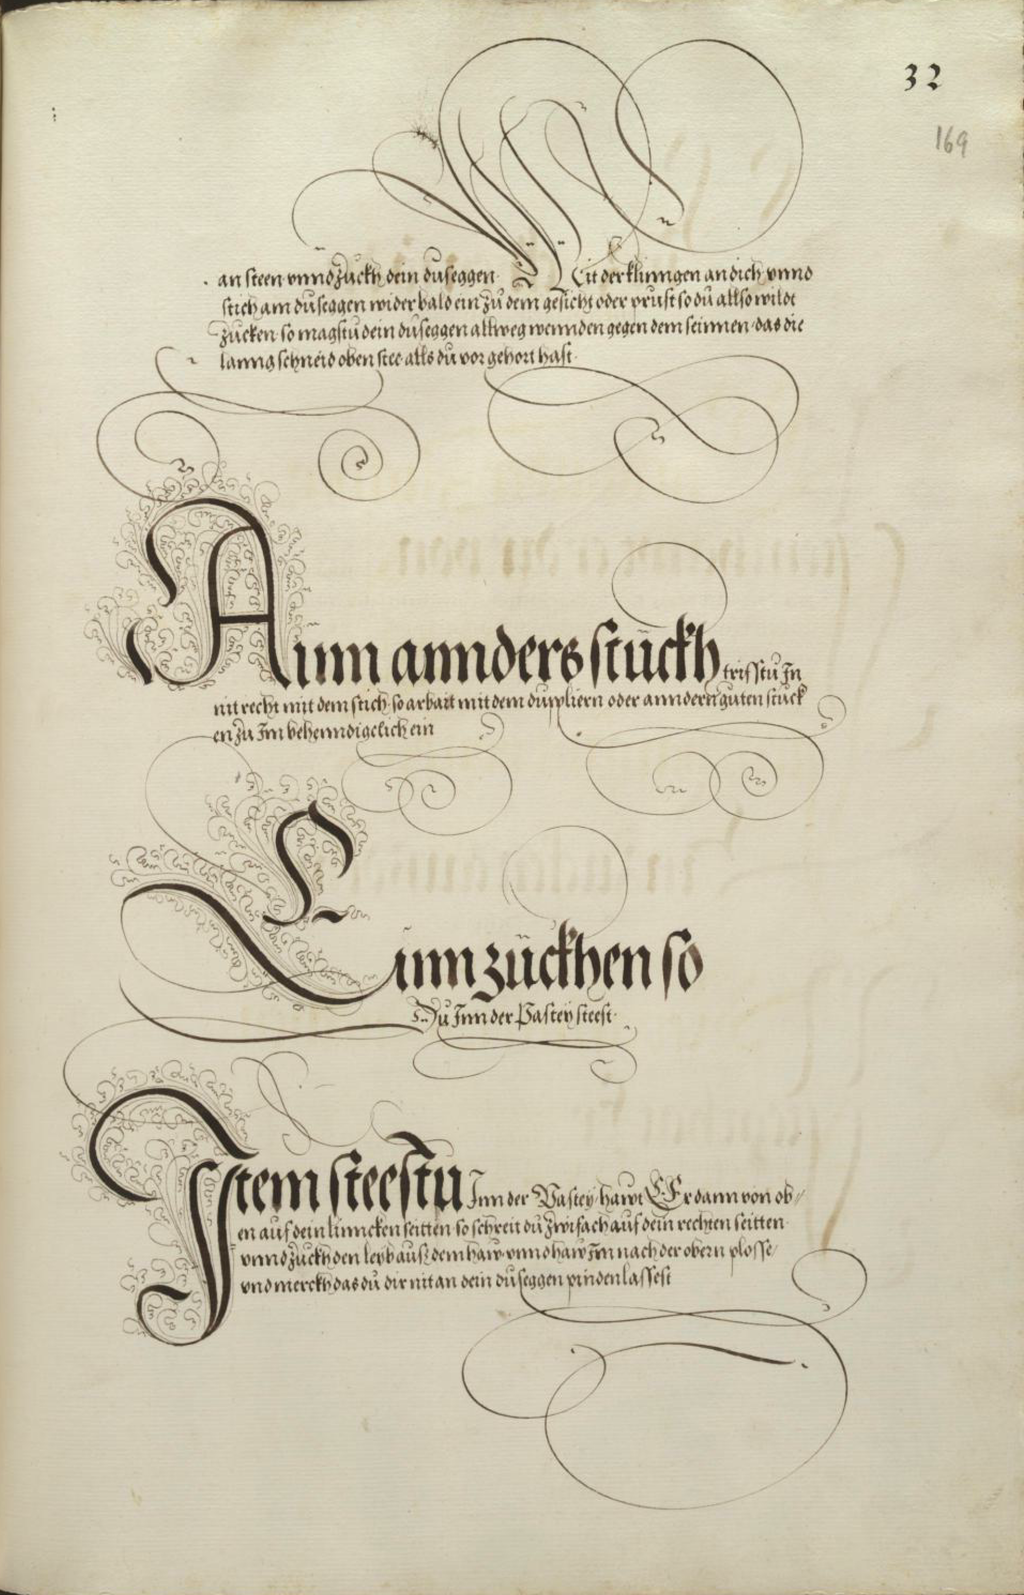 32
169
an steen vnnd zuckh dein duseggen Mit der klinngen an dich vnnd
stich am duseggen wider bald ein zu dem gesicht oder prust so du allso wildt
zucken so magstu dein duseggen allweg wennden gegen dem seinnen das die
lanng schneid oben stee alls du vor gehort hast
Ainn annders stuckh trifstu In
nit recht mit dem stich so arbait mit dem duppliern oder anndern guten stuck
en zu Im behenndigclich ein
Einn zuckhen so
Du Inn der Pastey steest
Item steestu Inn der Pastey hawt Er dann von ob
en auf dein linncken seitten so schreit du zwifach auf dein rechten seitten
vnnd zuckh den leyb aus dem haw vnnd haw Im nach der obern plosse
vnd merckh das du dir nit an dein duseggen pinden lassest